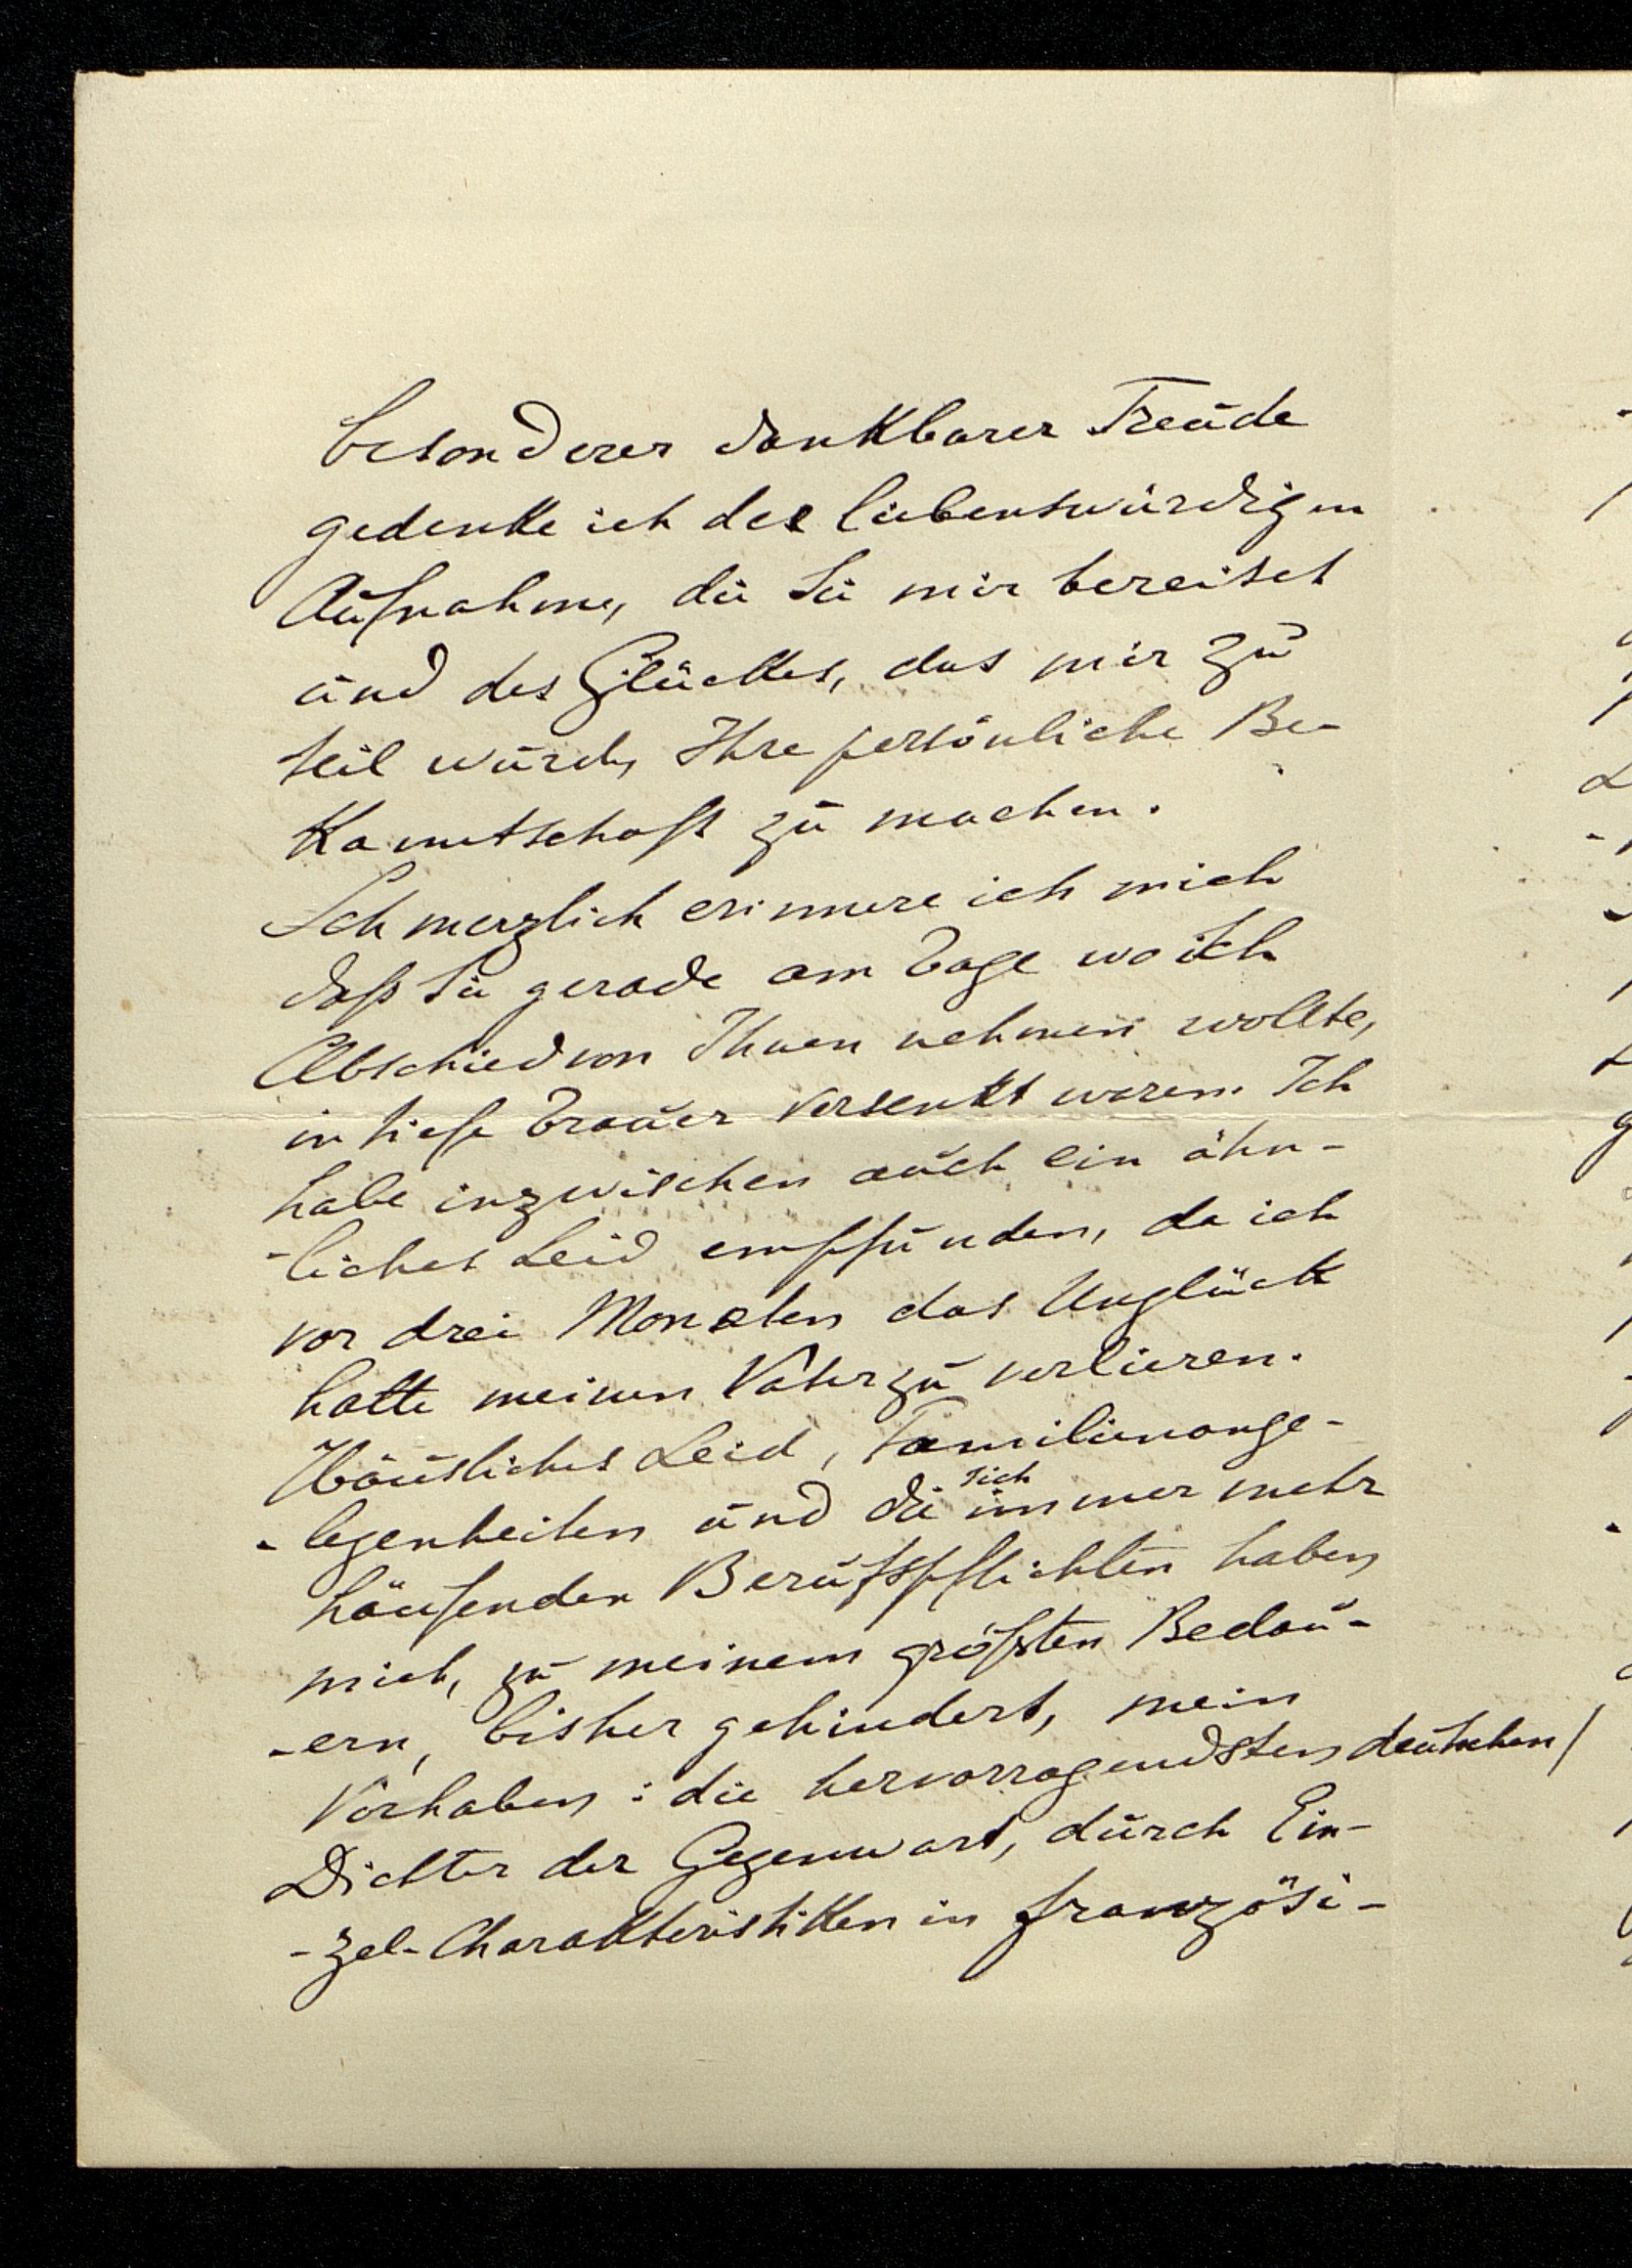 besonderer dankbarer Freude
gedenke ich der liebenswürdigen
Aufnahme, die Sie mir bereitet
und des Glückes, das mir zu
teil wurde, Ihre persönliche Be-
kanntschaft zu machen.
Schmerzlich erinnere ich mich
daß Sie gerade am Tage wo ich
Abschied von Ihnen nehmen wollte,
in tiefe Trauer versenkt waren. Ich
habe inzwischen auch ein ähn-
-liches Leid empfunden, da ich
vor drei Monaten das Unglück
hatte meinen Vater zu verlieren.
Häusliches Leid, Familienange-
-legenheiten und die sich immer mehr
häufenden Berufspflichten haben
mich, zu meinem größten Bedau-
-ern, bisher gehindert, mein
Vorhaben: die hervorragendsten deutschen/
Dichter der Gegenwart, durch Ein-
-zel-Charakteristiken in französi-